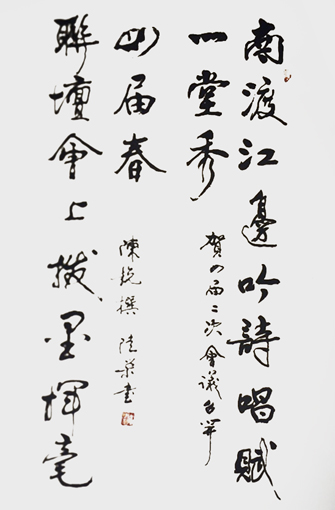 南渡江邊吟詩唱賦
一堂秀
賀四届二次會議召開
聯壇會上撥墨揮毫
四届春
陳銳撰 書